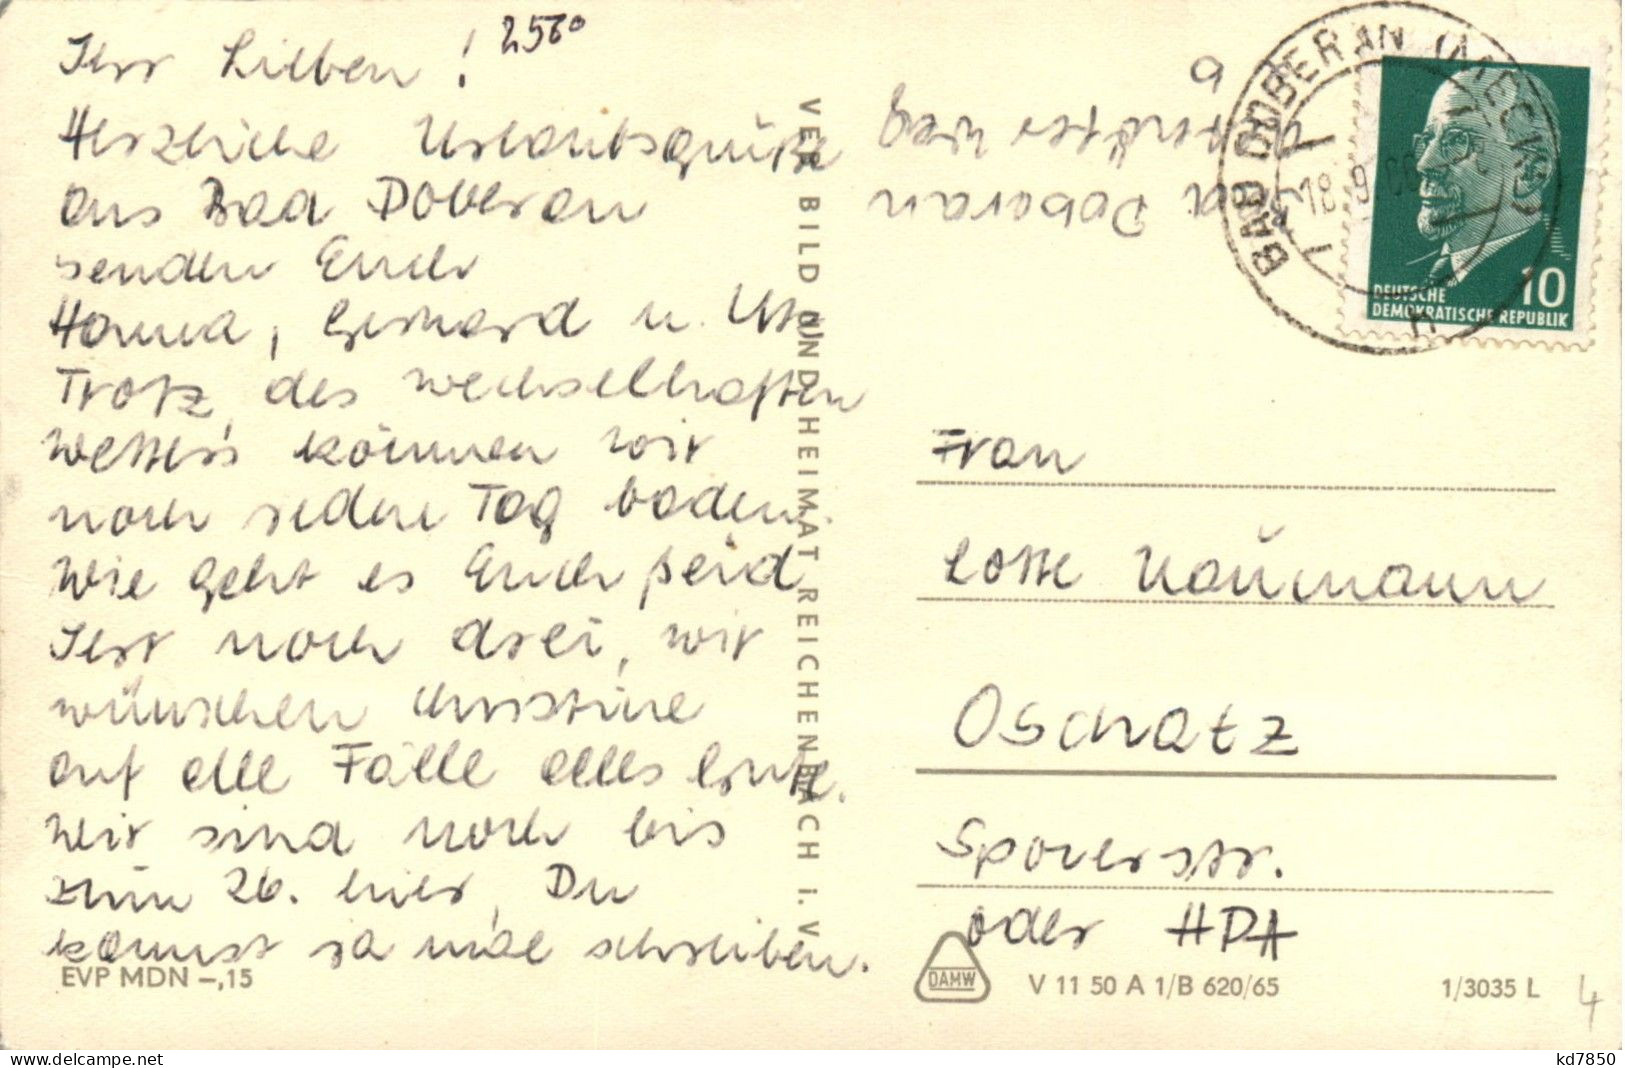 Ihr Lieben!
2560
Herzliche Urlaubsgrüße
aus Bad Doberan
senden Euch
Hanna, Gerhard u. Uta
Trotz des wechselhaften
Wetters können wir
noch jeden Tag baden.
Wie geht es Euch seid
Ihr noch drei, wir
wünschen Christine
auf alle Fälle alles Gute.
Wir sind noch bis
zum 26. hier, Du
kannst ja mal schreiben.
EVP MDN –,15
VEB BILD UND HEIMAT REICHENBACH I. V.
Doberan
Weg
9
BAD DOBERAN (MECKL)
18.9.
10
DEUTSCHE
DEMOKRATISCHE REPUBLIK
Frau
Lotte Naumann
Oschatz
Sporerstr.
oder HDA
DAMW
V 11 50 A 1/B 620/65
1/3035 L
4
kd7850